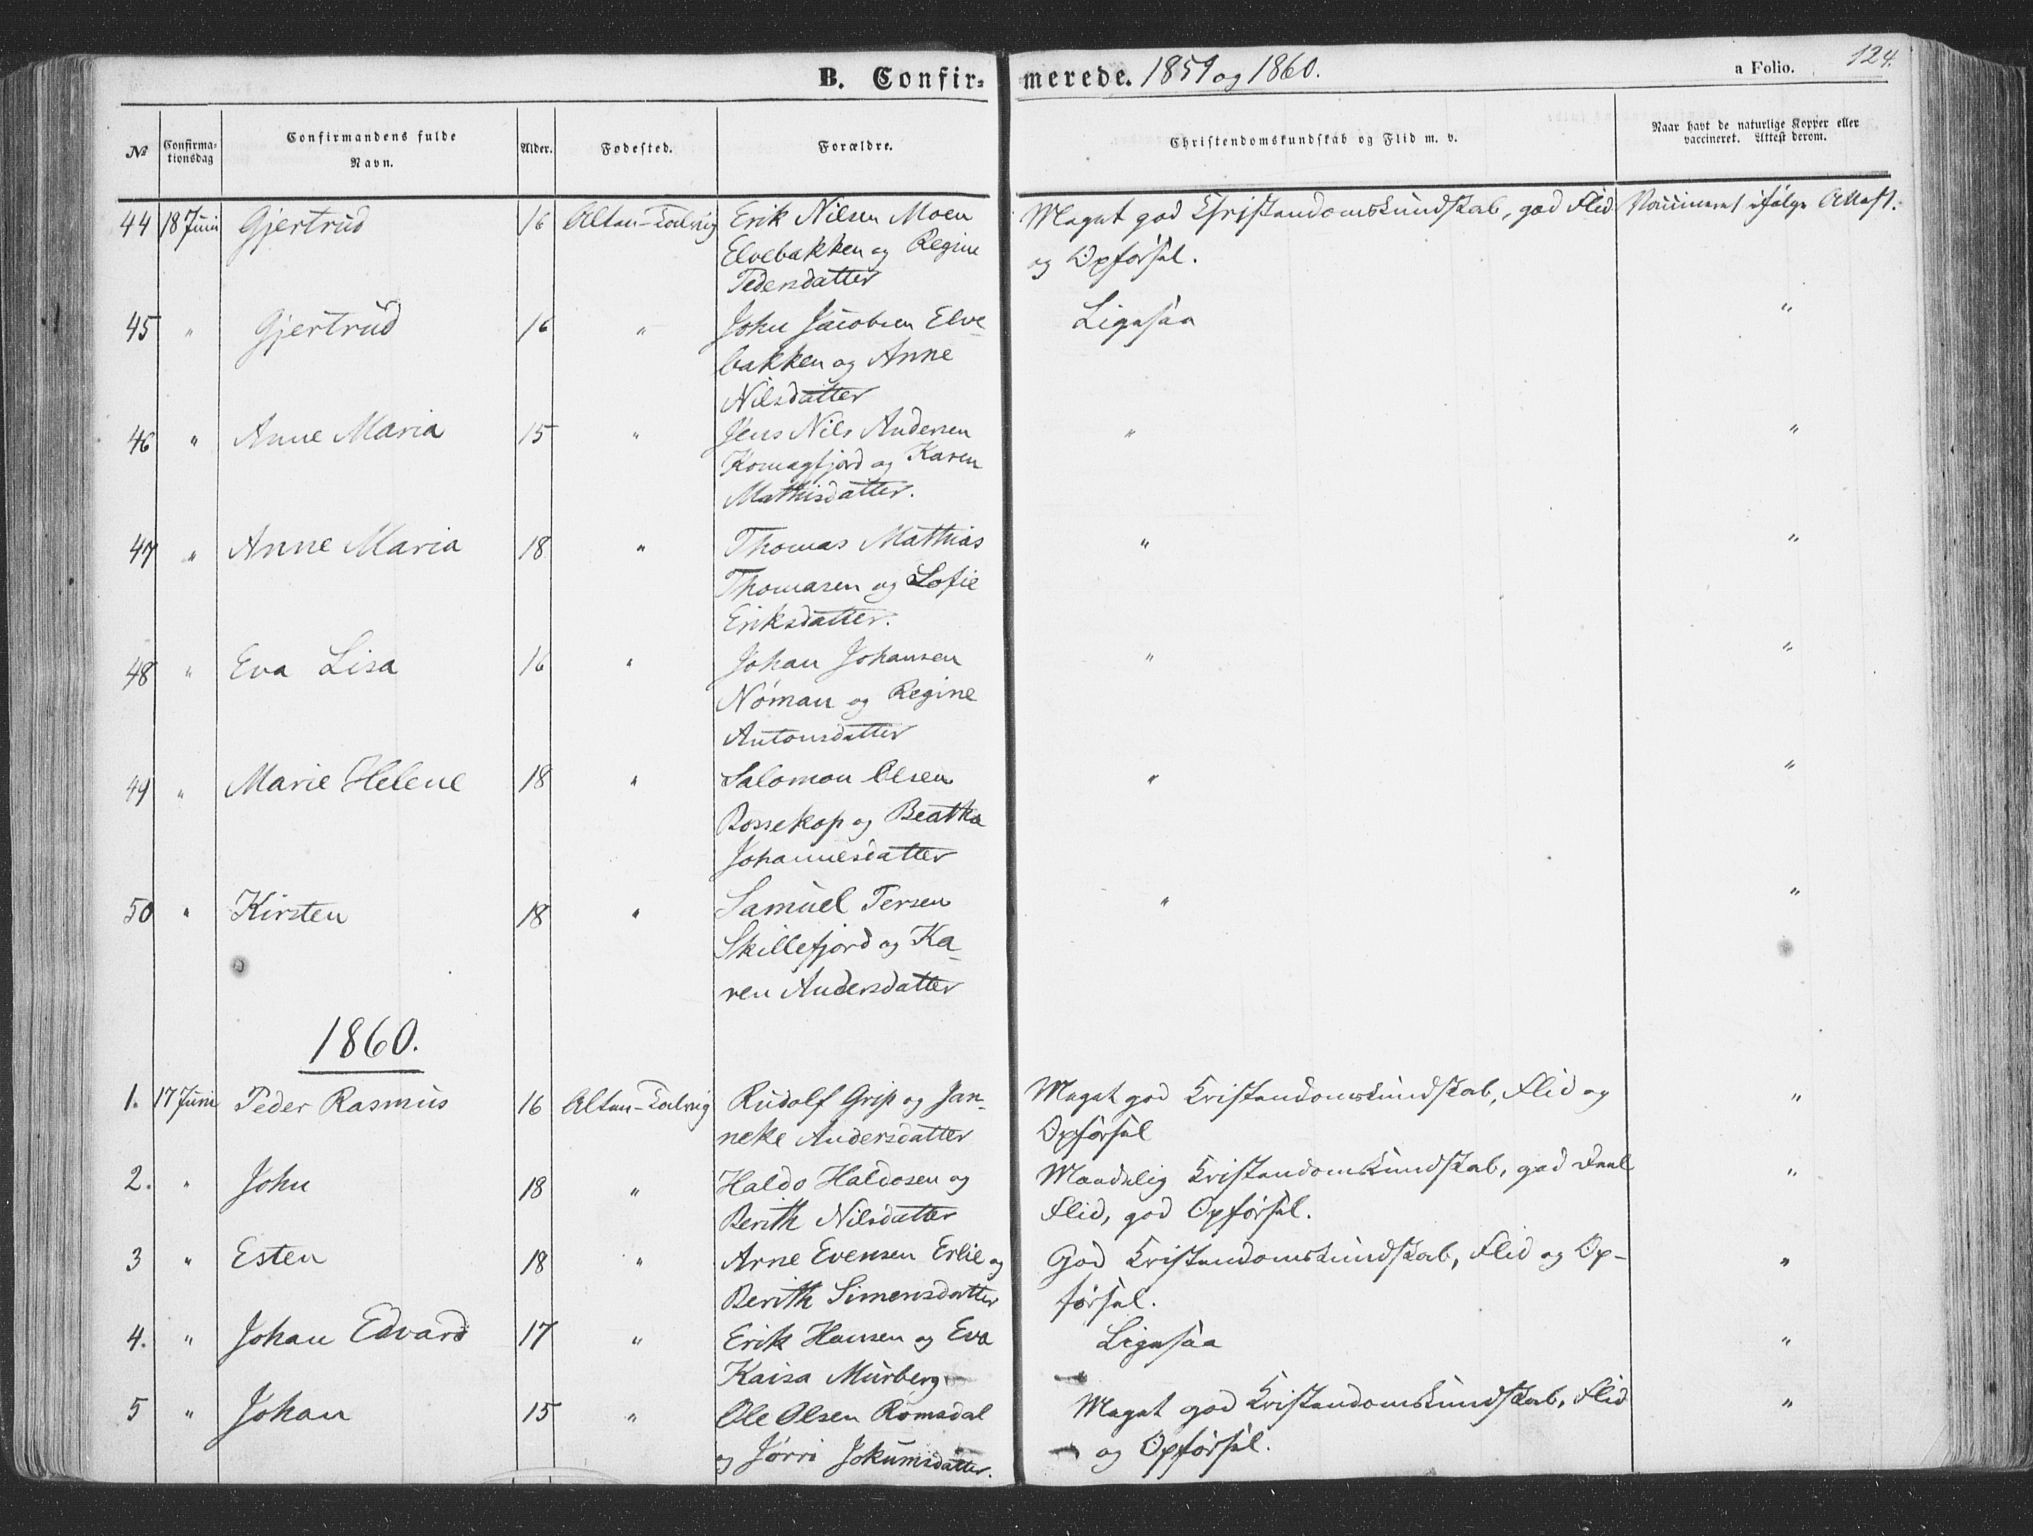 B. Confir- merede. 1859 og 1860. a Folio. 124.
No Confirma- tionsdag Confirmandens fulde Navn. Alder. Fødested. Forældre. Christendomskundskab og Flid m. v. Naar havt de naturlige Kopper eller vaccineret. Attest derom.
44 18 Juni Gjertrud 16 Alten-Talvig Erik Nilsen Moen Meget god Christendomskundskab, god Flid Vaccineret ifølge Attest.
Elvebakken og Regine og Opførsel.
Pedersdatter
45 " Gjertrud 16 " John Jacobsen Elve- Ligesaa "
bakken og Anne
Nilsdatter
46 " Anne Maria 15 " Jens Nils Andersen " "
Komagfjord og Karen
Mathisdatter.
47 " Anne Maria 18 " Thomas Mathias " "
Thomasen og Sofie
Eriksdatter.
48 " Eva Lisa 16 " Johan Johansen " "
Nóman og Regine
Antonsdatter
49 " Marie Helene 18 " Salomon Olsen " "
Bossekop og Beatha
Johannesdatter
50 " Kirsten 18 " Samuel Persen " "
Skillefjord og Ka-
ren Andersdatter
1860.
1. 17 Juni Peder Rasmus 16 Alten-Talvig Rudolf Grip og Jan- Meget god Kristendomskundskab, Flid og "
neke Andersdatter Opførsel
2. " John 18 " Haldo Haldosen og Maadelig Kristendomskundskab, god Deel "
Berith Nilsdatter Flid, god Opførsel.
3 " Esten 18 " Arne Evensen Erlie og God Kristendomskundskab, Flid og Op- "
Berith Simensdatter førsel.
4. " Johan Edvard 17 " Erik Hansen og Eva Ligesaa "
Kaisa Murberg
5 " Johan 15 " Ole Olsen Romsdal Meget god Kristendomskundskab, Flid "
og Jørri Jokumsdatter. og Opførsel.